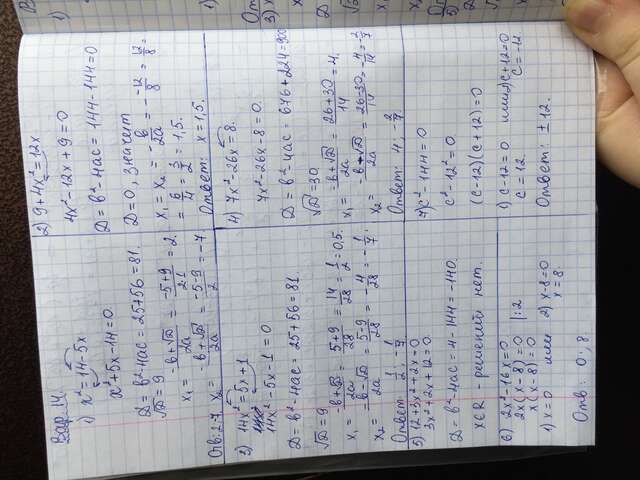 Вар. 14.
1) x² = 14-5x
x²+5x-14=0.
D = b²-4ac = 25+56=81.
√D = 9
x₁ = -b+√D/2a = -5+9/2·1 = 2.
x₂ = -b+√D/2a = -5-9/2 = -7.
Отв: 2;-7.
2) 9+4x²=12x
4x²-12x+9=0
D = b²-4ac = 144-144=0
D=0, значит
x₁ = x₂ = -b/2a = -12/8 = 12/8 =
= 6/4 = 3/2 = 1,5.
Ответ: x=1,5.
3) 14x² = 5x+1
14x²-5x-1=0
D = b²-4ac = 25+56=81.
√D = 9
x₁ = -b+√D/2a = 5+9/28 = 14/28 = 1/2 = 0,5.
x₂ = -b-√D/2a = 5-9/28 = -4/28 = -1/7.
Ответ: 1/2; -1/7.
4) 7x²-26x=8.
7x²-26x-8=0.
D = b²-4ac = 676+224=900
√D = 30
x₁ = -b+√D/2a = 26+30/14 = 4.
x₂ = -b+√D/2a = 26-30/14 = -4/14 = -2/7
Ответ: 4; -2/7.
5) 12+3x²+2x=0
3x²+2x+12=0.
D = b²-4ac = 4-144=-140.
x∈R - решений нет.
6) 2x²-16x=0.
2x(x-8)=0 |:2
x(x-8)=0
1) x=0 или 2) x-8=0
x=8.
Отв: 0; 8.
7) c²-144=0
c²-12²=0
(c-12)(c+12)=0
1) c-12=0 или 2) c+12=0
c=12. c=-12.
Ответ: ±12.